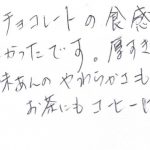 チョコレートの食感
かったです。厚すぎ
あんのやわらかさも
お茶にもコーヒーに